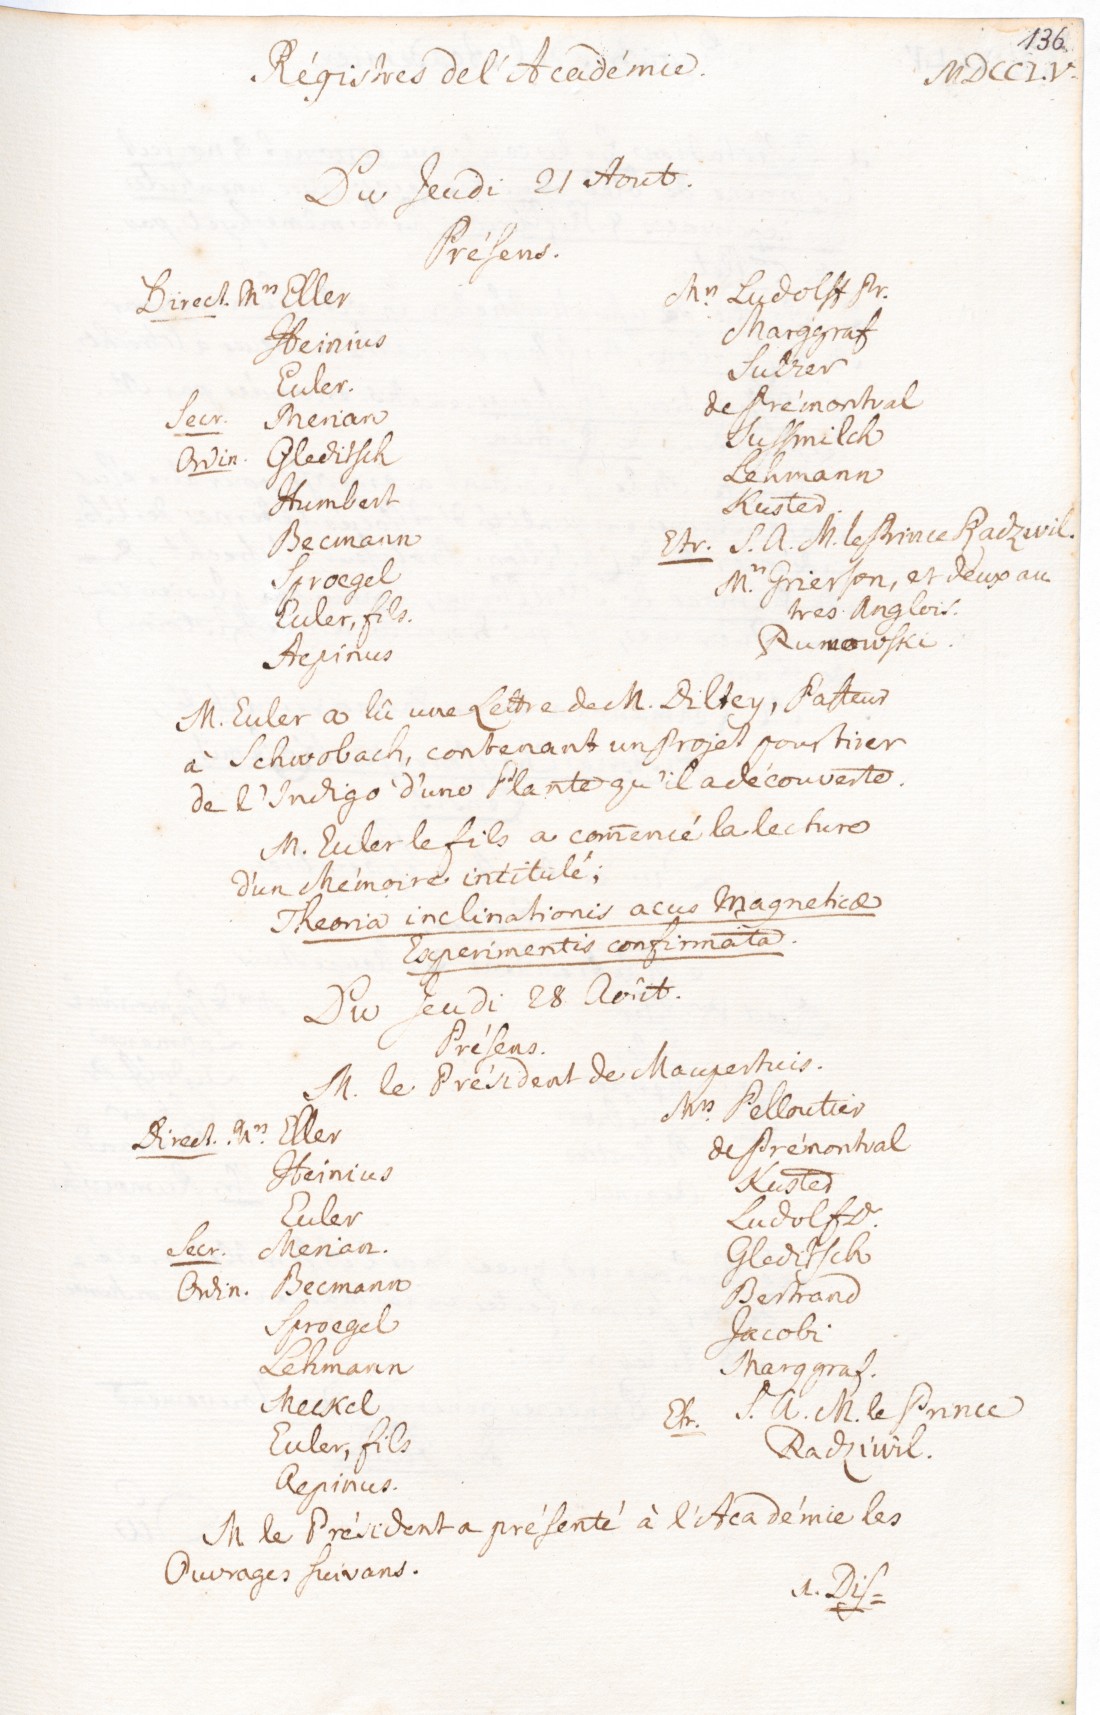 136.
Régistres de l'Académie.
MDCCLV.
Du Jeudi 21 Aout.
Présens.
Direct. Mrs Eller
Heinius
Euler.
Secr. Merian
Ordin. Gleditsch
Humbert
Becmann
Sproegel
Euler, fils.
Aepinus
Mrs Ludolff Pr.
Marggraf
Sulzer
de Prémontval
Sussmilch
Lehmann
Kuster.
Etr. S. A. M. le Prince Radziwil.
Mrs. Grierson, et deux au
tres Anglois.
Rumowski.
M. Euler a lû une Lettre de M. Diltey, Pasteur
à Schwobach, contenant un Projet pour tirer
de l'Indigo d'une Plante qu'il a découverte.
M. Euler le fils a com̄encé la lecture
d'un Mémoire intitulé;
Theoria inclinationis acus Magneticæ
Experimentis confirmata.
Du Jeudi 28 Août.
Présens.
M. le Président de Maupertuis.
Direct. Mrs. Eller
Heinius
Euler
Secr. Merian.
Ordin. Becmann
Sproegel
Lehmann
Meckel
Euler, fils
Aepinus.
Mrs. Pelloutier
de Prémontval
Kuster
Ludolf D.
Gleditsch
Bertrand
Jacobi
Marggraf.
Etr. S. A. M. le Prince
Radziwil.
M le Président a présenté à l'Académie les
Ouvrages suivans.
1. Dis=